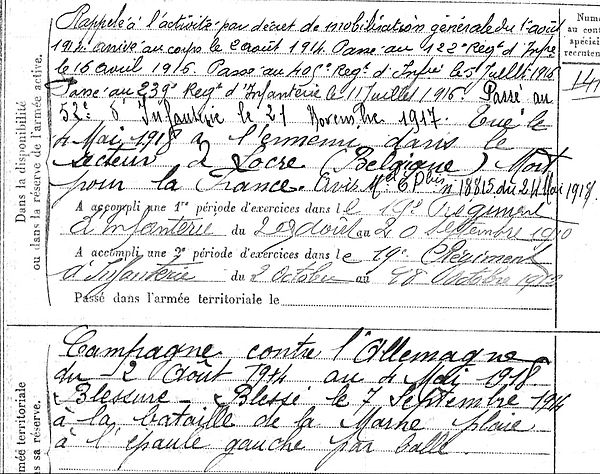 Rappelé à l'activité par décret de mobilisation générale du 1er août
1914 arrivé au corps le 2 août 1914. Passé au 122e Régt d'Infrie
le 16 avril 1916. Passé au 405e Régt d'Infrie le 5 Juillet 1916
Passé au 239e Régt d'Infanterie le 11 Juillet 1916. Passé au
52e d'Infanterie le 21 Novembre 1917. Tué le
4 Mai 1918 à l'ennemi dans le
secteur de Locre (Belgique) Mort
pour la France. Avis Mel E. Plis n° 18815 du 24 Mai 1918.
A accompli une 1re période d'exercices dans le 19e Régiment
d'Infanterie du 29 août au 20 septembre 1910
A accompli une 2e période d'exercices dans le 19e Régiment
d'Infanterie du 2 Octobre au 18 Octobre 1912
Passé dans l'armée territoriale le
Campagne contre l'Allemagne
du 2 Août 1914 au 4 Mai 1918
Blessure - Blessé le 7 Septembre 1914
à la bataille de la Marne plaie
à l'épaule gauche par balle
Dans la disponibilité
ou dans la réserve de l'armée active.
Numé
au cont
spécial
recrutem
mée territoriale
sa réserve.